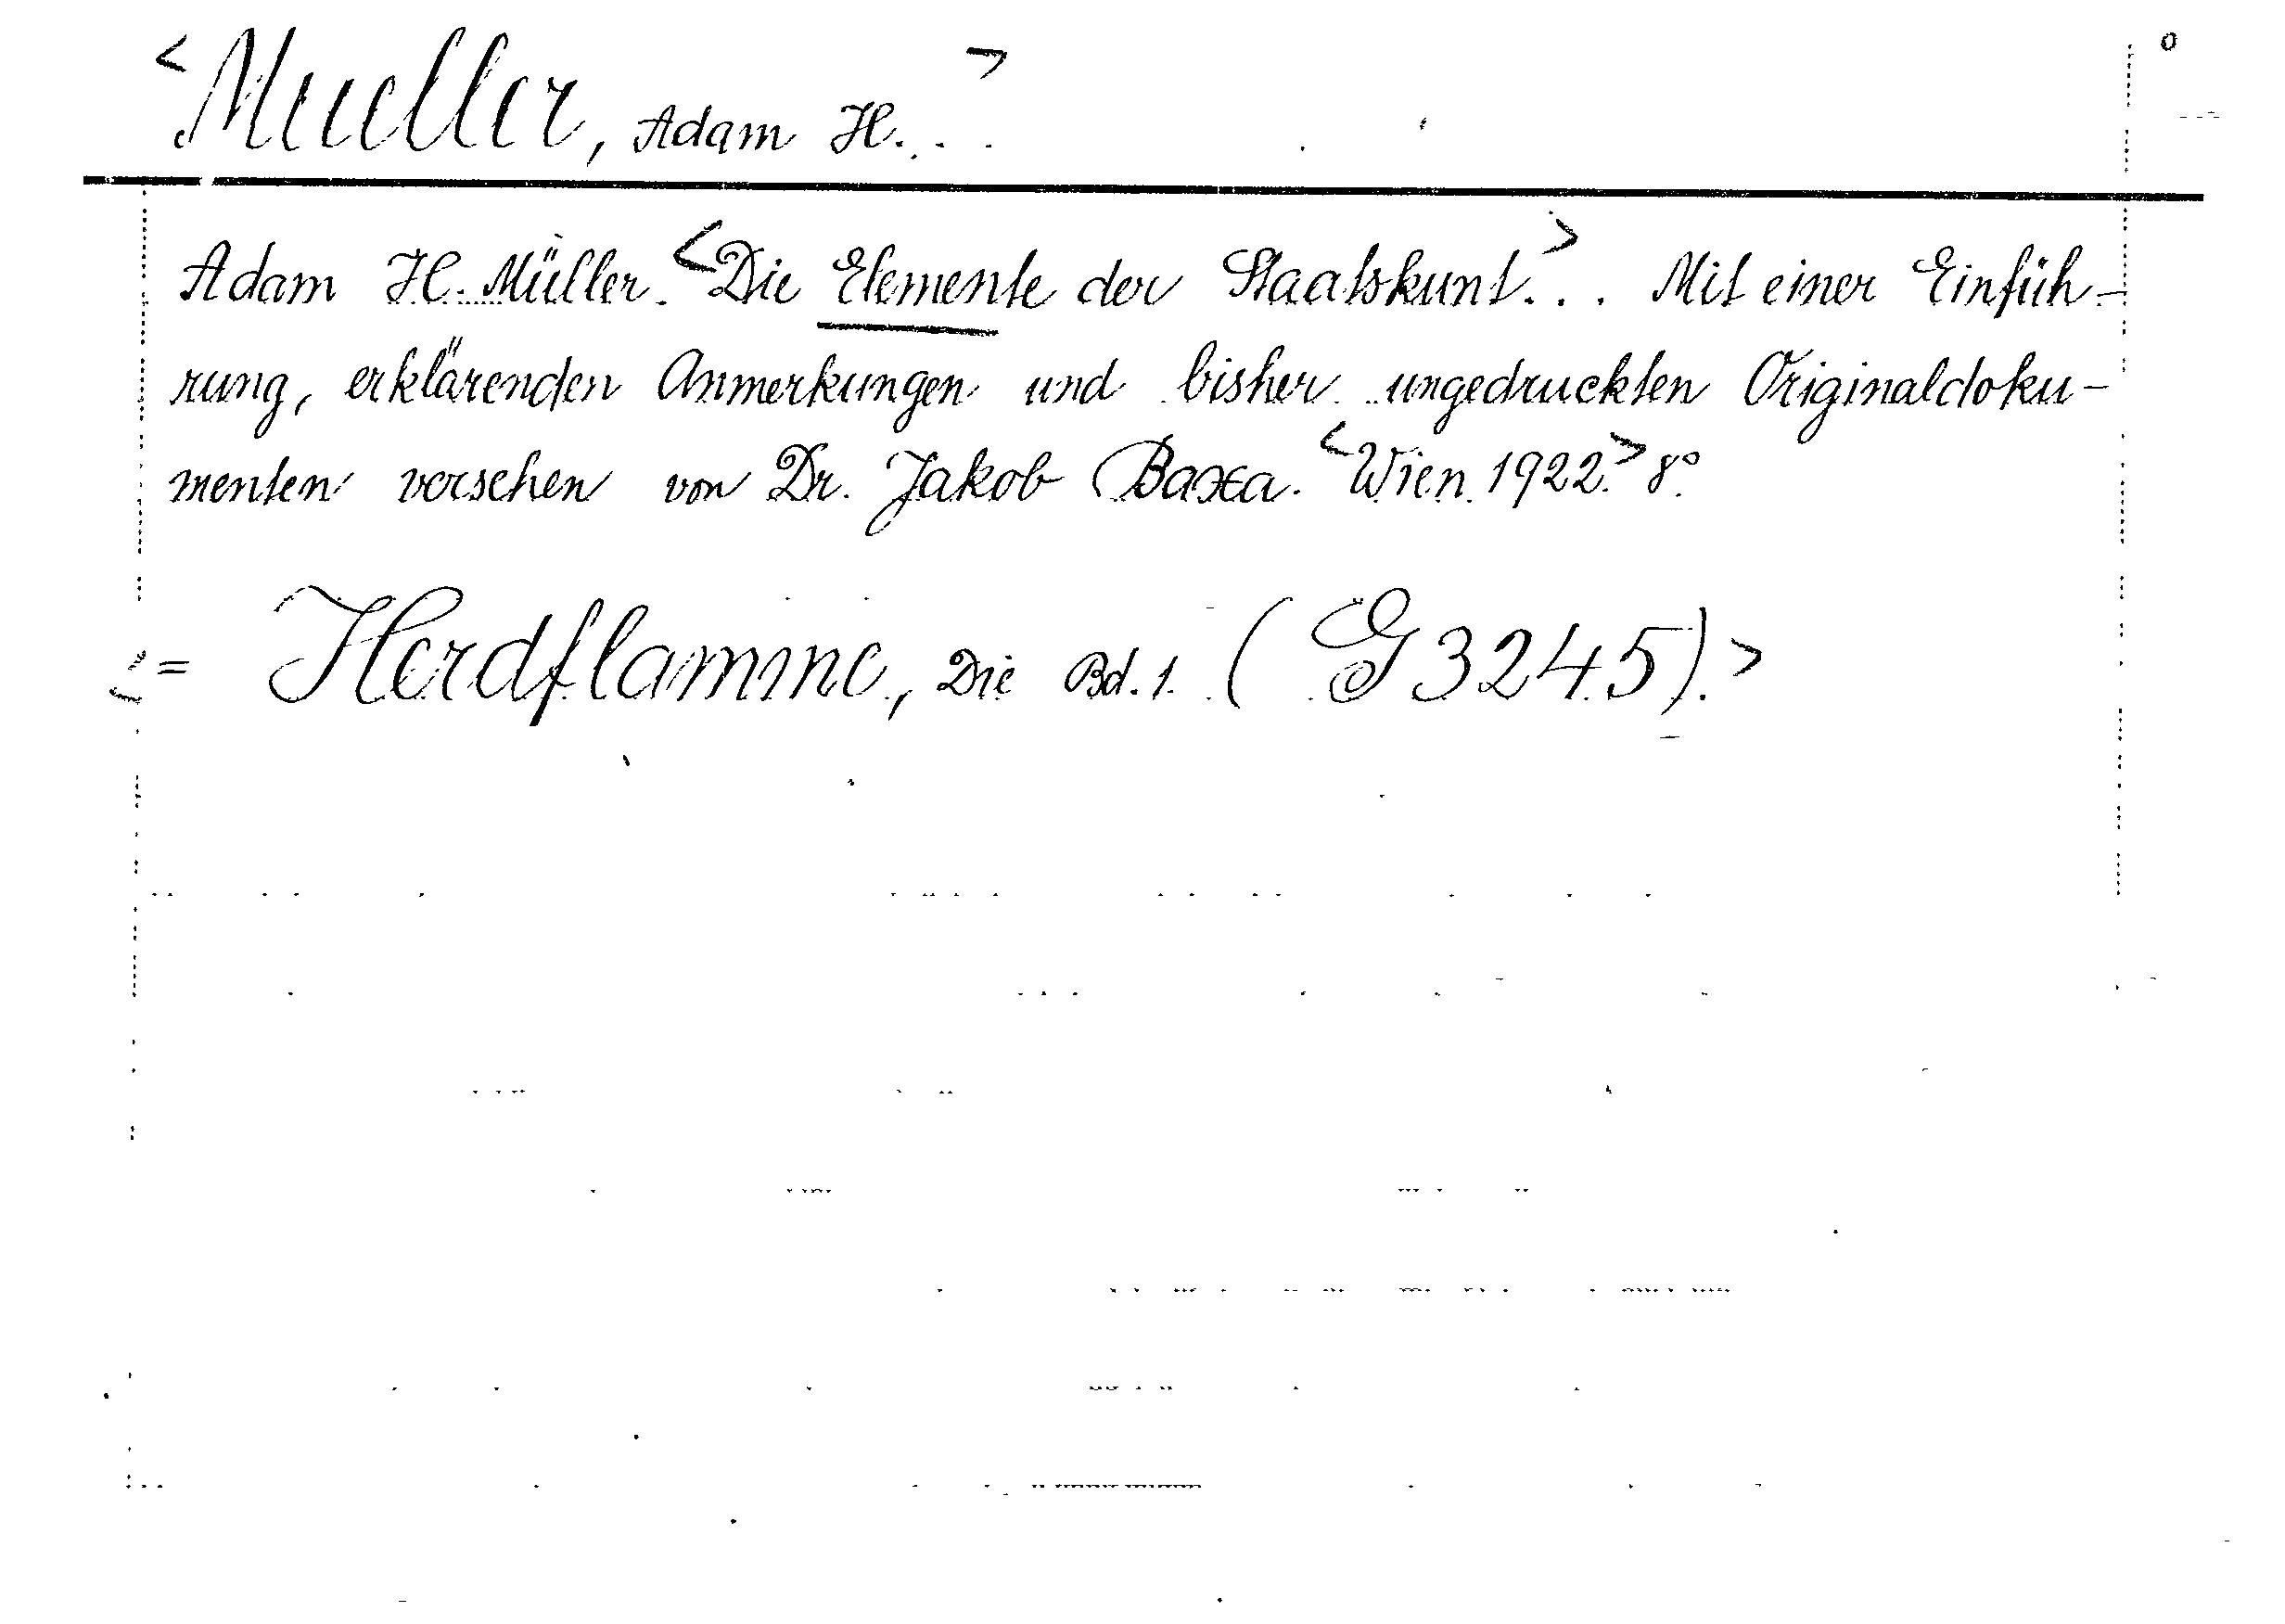 <Mueller, Adam H...>
Adam H. Müller. <Die Elemente der Staatskunst...> Mit einer Einfüh-
rung, erklärenden Anmerkungen und bisher ungedruckten Originaldoku-
menten versehen von Dr. Jakob Baxa. <Wien 1922.> 8°
<= Herdflamme, Die Bd. 1. (G3245).>